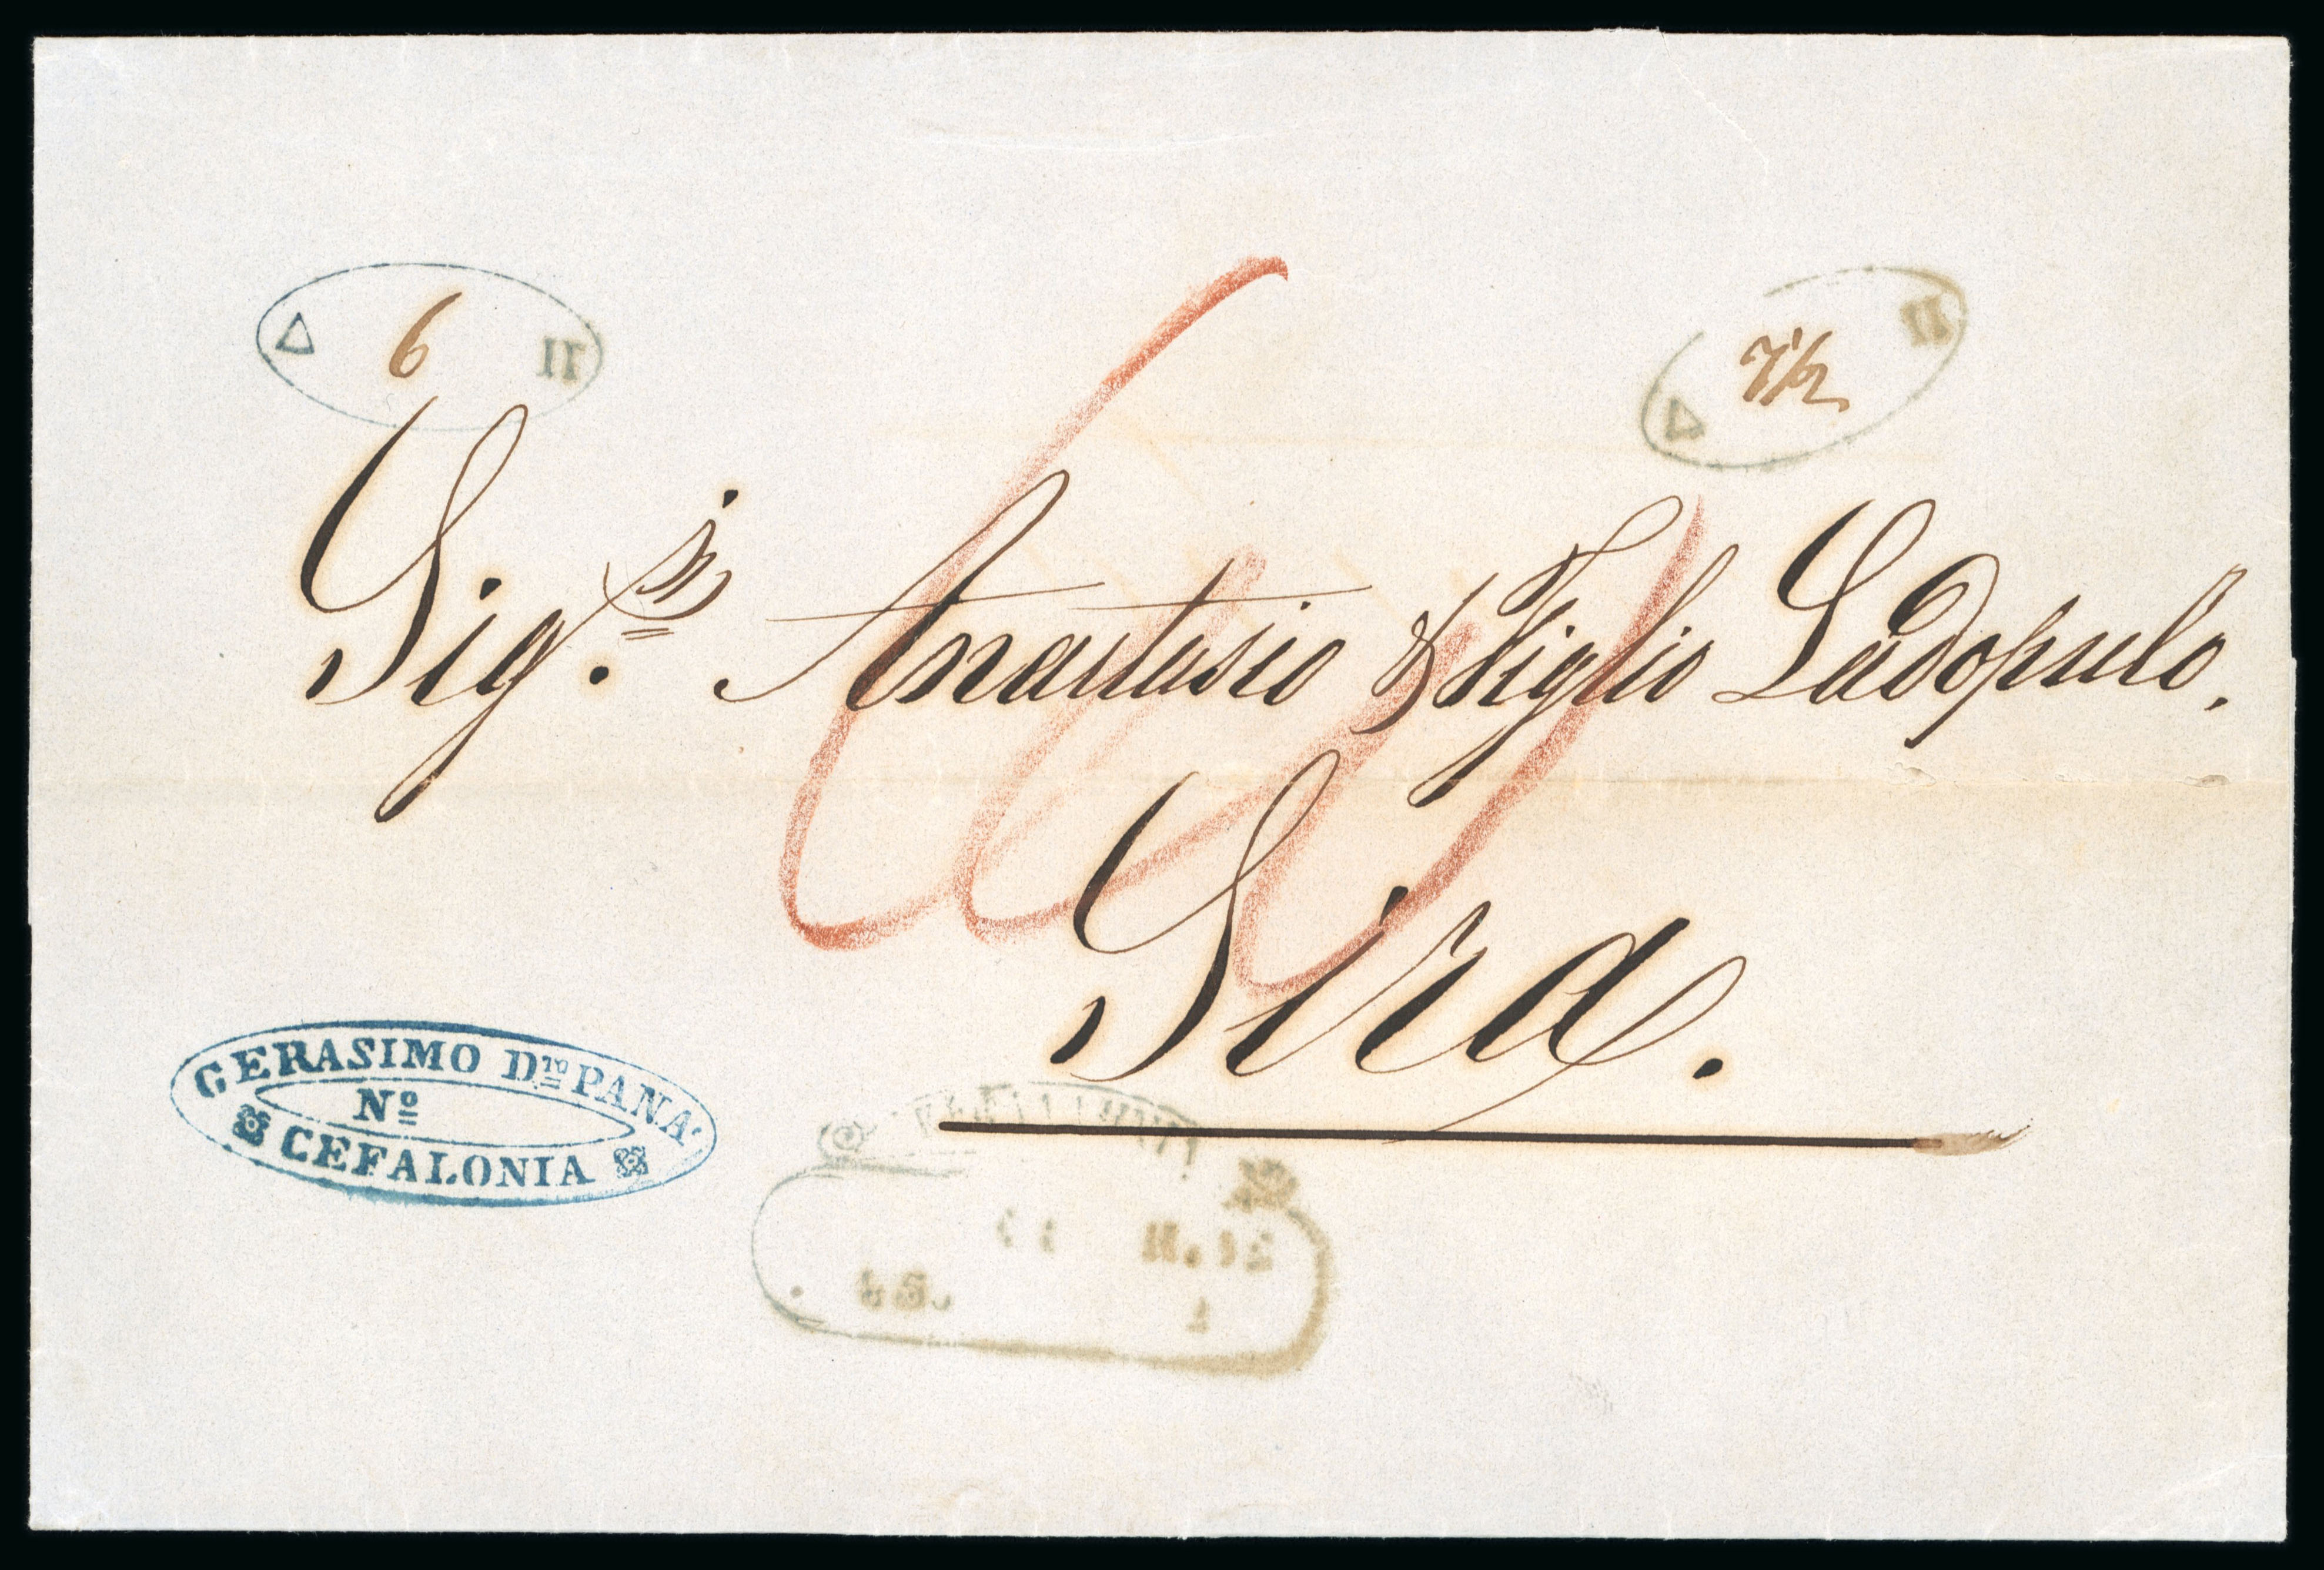 Δ 6 Π
Δ 7 1/2 Π
Sig.ri Anastasio & Figlio Ladopulo.
Sira.
GERASIMO Dro PANA:
No
CEFALONIA